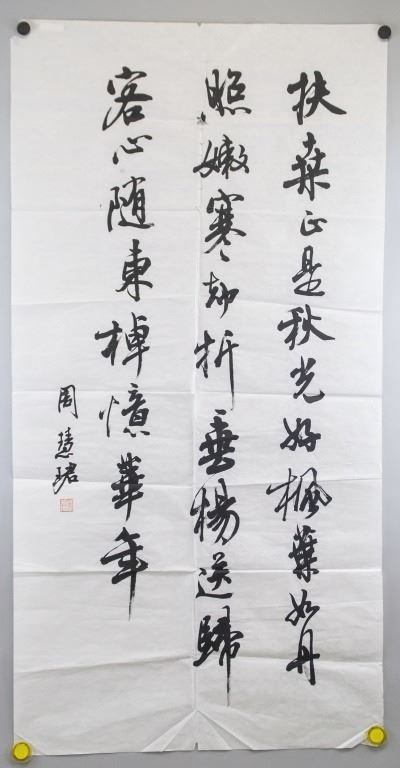 扶桑正是秋光好楓葉如丹
照嫩寒却折垂楊送歸
客心随東棹憶華年
周慧珺